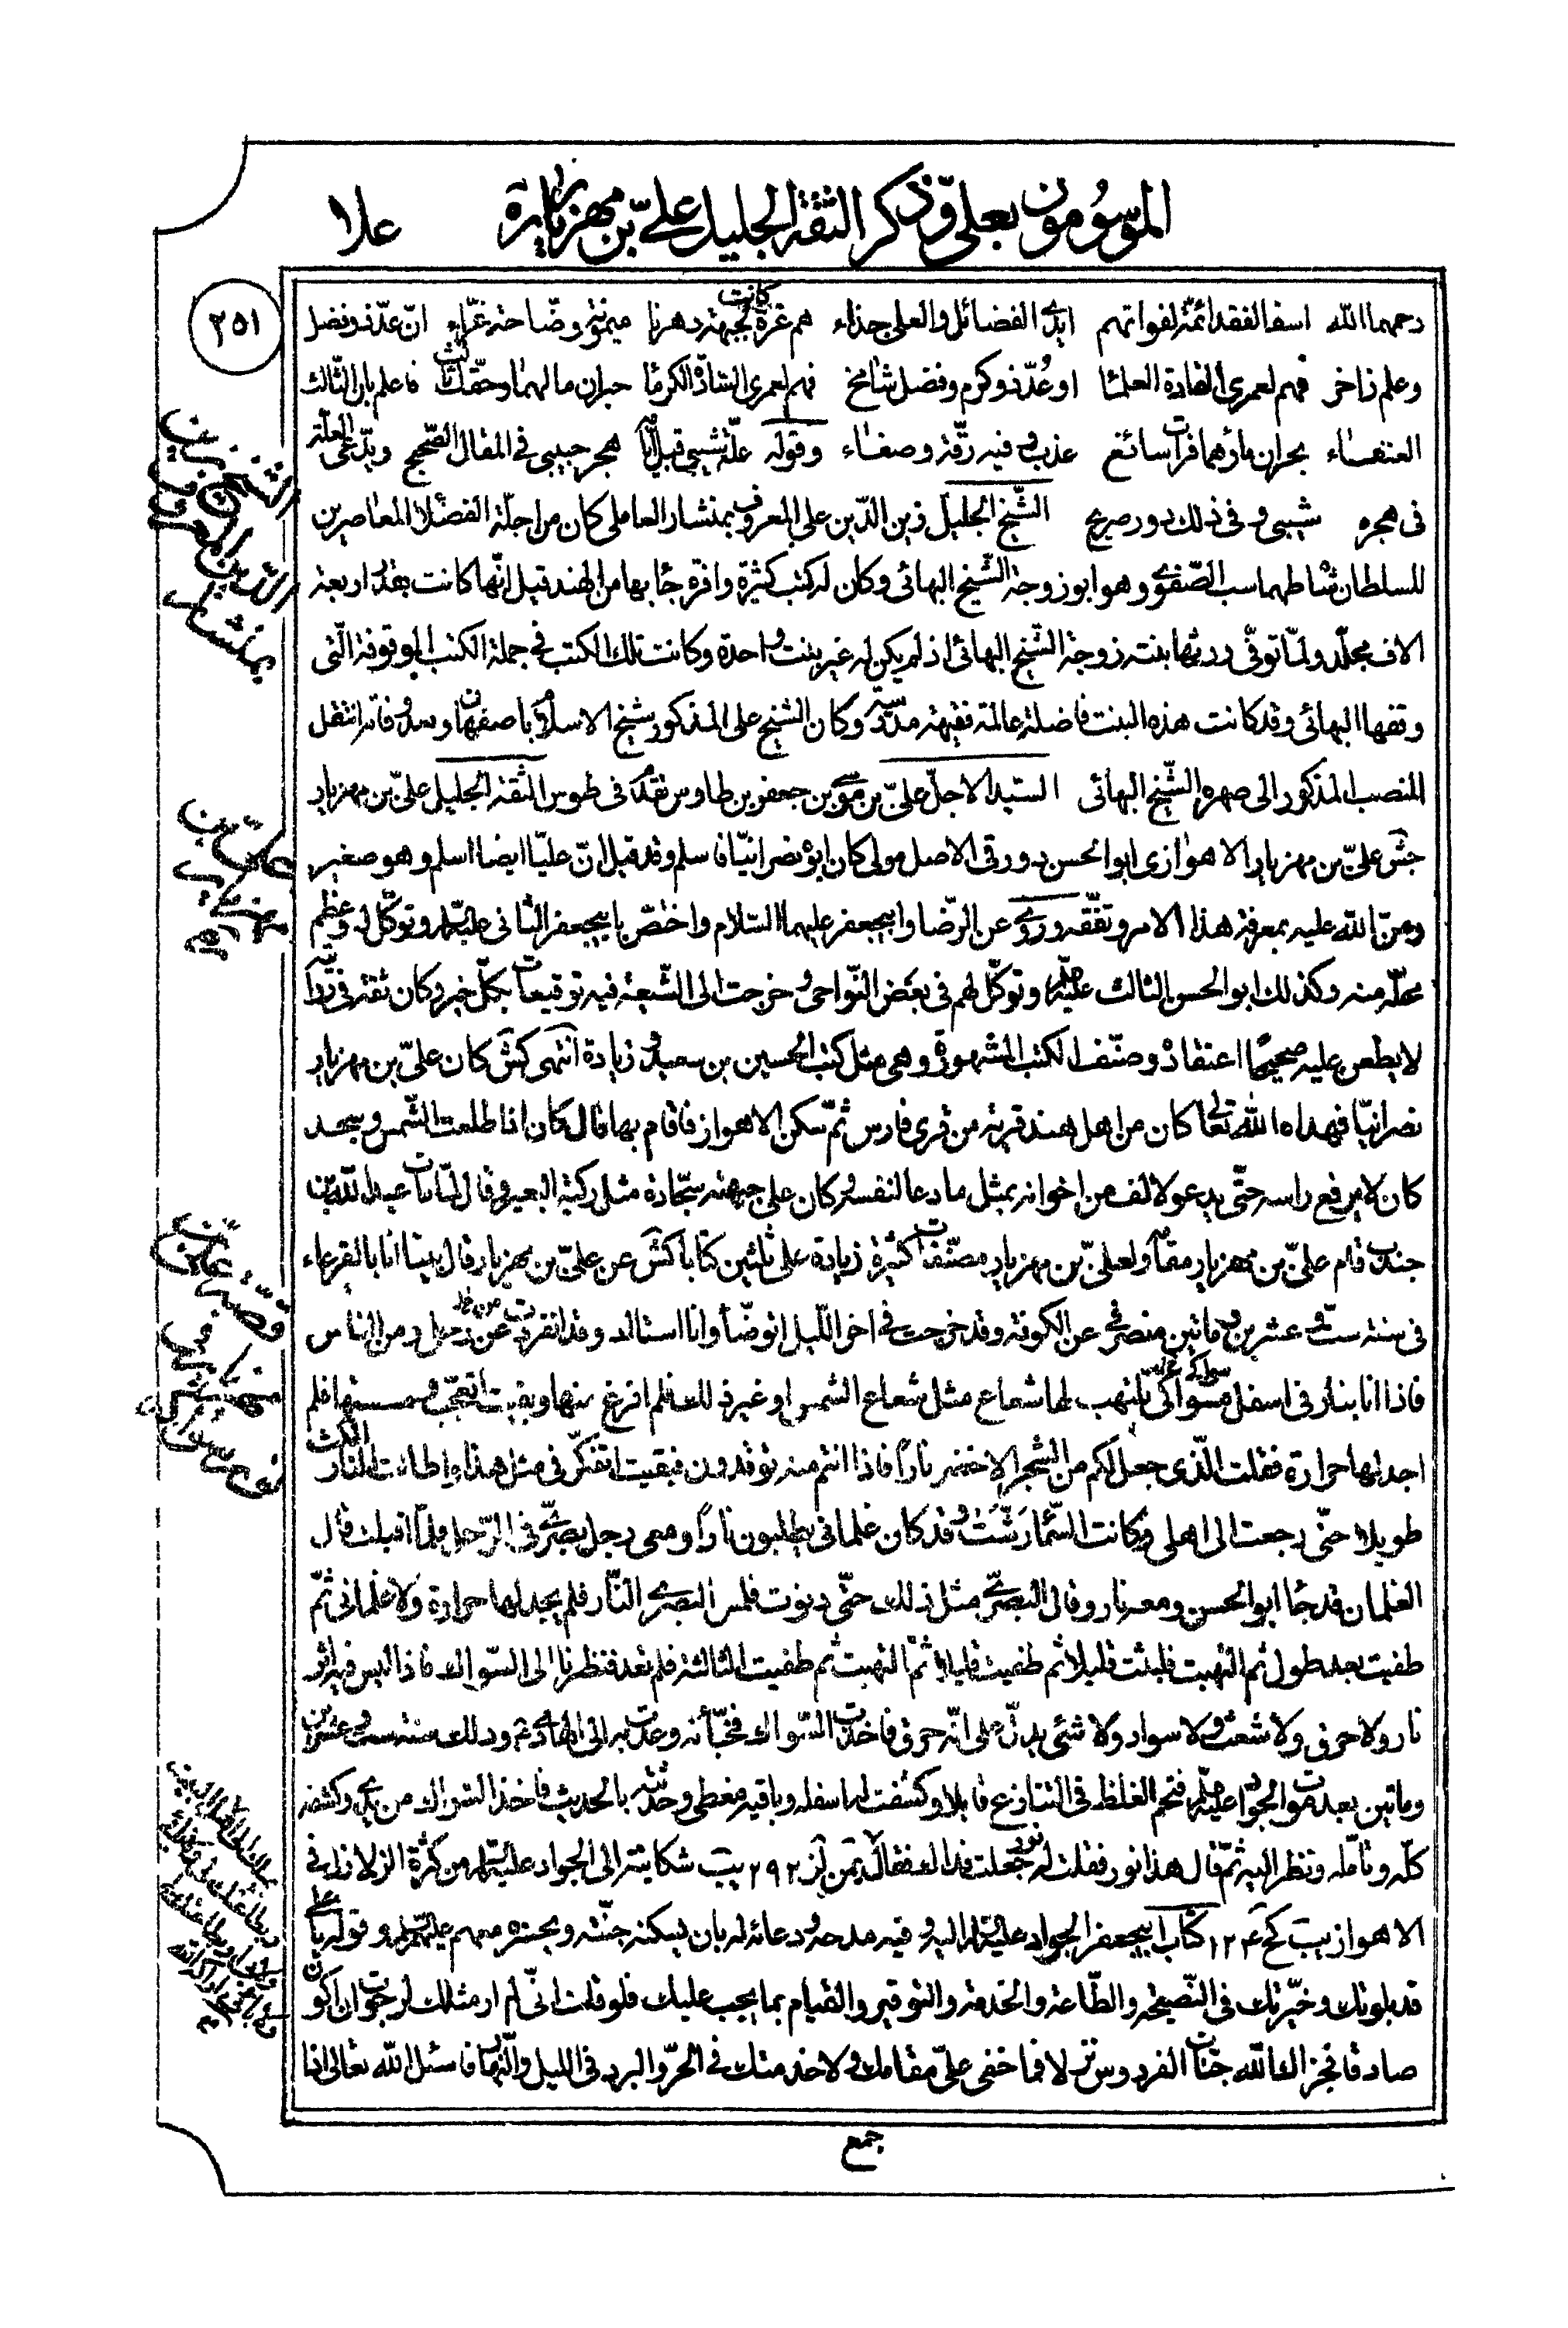 الموسومون بعلي وذكر الثقة الجليل علي بن مهزيار ره
علا
٢٥١
رحمهما الله اسفا لفقد ائمة لفواتهم ايدي الفضائل والعلى جذاء هم غرة كانت لجبهة دهرنا ميمونة وضاحة غراء ان عد ذو فضل
وعلم زاخر فهم لعمري القادة العلماء او عد ذو كرم وفضل شامخ فهم لعمري السادة الكرماء حبران مالهما وحقك ثالث فاعلم بان الثالث
العنقاء بحران ماؤهما فرات سائغ عذب وفيه رقة وصفاء وقوله علة شيبي قبل ابانه هجر حبيبي في المقال الصحيح ويدعي العلة
في هجره شيبي وفي ذلك دور صريح الشيخ الجليل زين الدين علي المعروف بمنشار العاملي كان من اجلة الفضلاء المعاصرين
للسلطان شاه طهماسب الصفوي وهو ابو زوجة الشيخ البهائي وكان له كتب كثيرة وافرة جاء بها من الهند قيل انها كانت بقدر اربعة
الاف مجلد ولما توفي ورثها بنته زوجة الشيخ البهائي اذ لم يكن له غير بنت واحدة وكانت تلك الكتب في جملة الكتب الموقوفة التي
وقفها البهائي وقد كانت هذه البنت فاضلة عالمة فقيهة مدرسة وكان الشيخ علي المذكور شيخ الاسلام باصفهان وبعد وفاته انتقل
المنصب المذكور الى صهره الشيخ البهائي السيد الاجل علي بن موسى بن جعفر بن طاوس تقدم في طوس الثقة الجليل علي بن مهزيار
جش علي بن مهزيار الاهوازي ابو الحسن دورقي الاصل مولى كان ابوه نصرانيا فاسلم وقد قيل ان عليا ايضا اسلم وهو صغير
ومن الله عليه بمعرفة هذا الامر وتفقه وروى عن الرضا وابيجعفر عليهما السلام واختص بابيجعفر الثاني عليه السلام وتوكل له وعظم
محله منه وكذلك ابو الحسن الثالث عليه السلام وتوكل لهم في بعض النواحي وخرجت الى الشيعة فيه توقيعات بكل خير وكان ثقة في روايته
لا يطعن عليه صحيحا اعتقاده وصنف الكتب المشهورة وهي مثل كتب الحسين بن سعيد وزيادة انتهى كش كان علي بن مهزيار
نصرانيا فهداه الله تعالى كان من اهل هند قرية من قرى فارس ثم سكن الاهواز فاقام بها قال كان اذا طلعت الشمس وسجد
كان لا يرفع راسه حتى يدعو لالف من اخوانه بمثل ما دعا لنفسه وكان على جبهته سجادة مثل ركبة البعير وقال لما مات عبد الله بن
جندب قام علي بن مهزيار مقامه ولعلي بن مهزيار مصنفات كثيرة زيادة على ثلثين كتابا كش عن علي بن مهزيار قال بينا انا بالقرعاء
في سنة ست وعشرين وماتين منصرفي عن الكوفة وقد خرجت في اخر الليل اتوضأ وانا استاك وقد انفردت عن رحلي ومن الناس
فاذا انا بنار في اسفل مسواكي تلتهب لها شعاع مثل شعاع الشمس او غير ذلك فلم افزع منها وبقيت اتعجب ومسستها فلم
اجد لها حرارة فقلت الذي جعل لكم من الشجر الاخضر نارا فاذا انتم منه توقدون فبقيت اتفكر في مثل هذا واطالت النار المكث
طويلا حتى رجعت الى اهلي وكانت السماء رشت وقد كان غلماني يطلبون نارا ومعي رجل بصري في الرحل فلما اقبلت قال
الغلمان قد جاء ابو الحسن ومعه نار وقال البصري مثل ذلك حتى دنوت فلمس البصري النار فلم يجد لها حرارة ولا غلماني ثم
طفيت بعد طول ثم التهبت فلبثت قليلا ثم طفيت قليلا ثم التهبت ثم طفيت الثالثة فلم تعد فنظرنا الى السواك فاذا ليس فيه اثر
نار ولا حرق ولا شعث ولا سواد ولا شئ يدل على انه حرق فاخذت السواك فخبأته وعدت به الى الهادي ع وذلك سنة ست وعشرين
وماتين بعد موت الجواد عليه السلام فتحم الغلط في التنازع قابلا وكشفت له اسفله وباقيه مغطى وحدثته بالحديث فاخذ السواك من يدي وكشفه
كله وتأمله ونظر اليه ثم قال هذا نور فقلت له نور جعلت فداك فقال يمن لز ٢٩٢ يب شكايته الى الجواد عليه السلام من كثرة الزلازل في
الاهواز يب كح ١٢٤ كتاب ابيجعفر الجواد عليه السلام اليه وفيه مدحه ودعائه له بان يسكنه جنته ويحشره معهم عليهم السلام وقوله يا علي
قد بلوتك وخبرتك في النصيحة والطاعة والخدمة والتوقير والقيام بما يجب عليك فلو قلت اني لم ار مثلك لرجوت ان اكون
صادقا فجزاك الله جنات الفردوس نزلا فما خفي علي مقامك ولا خدمتك في الحر والبرد في الليل والنهار فاسئل الله تعالى اذا
جمع
الشيخ زين الدين المعروف بمنشار
علي بن مهزيار
قصة علي بن مهزيار في نور سواكه